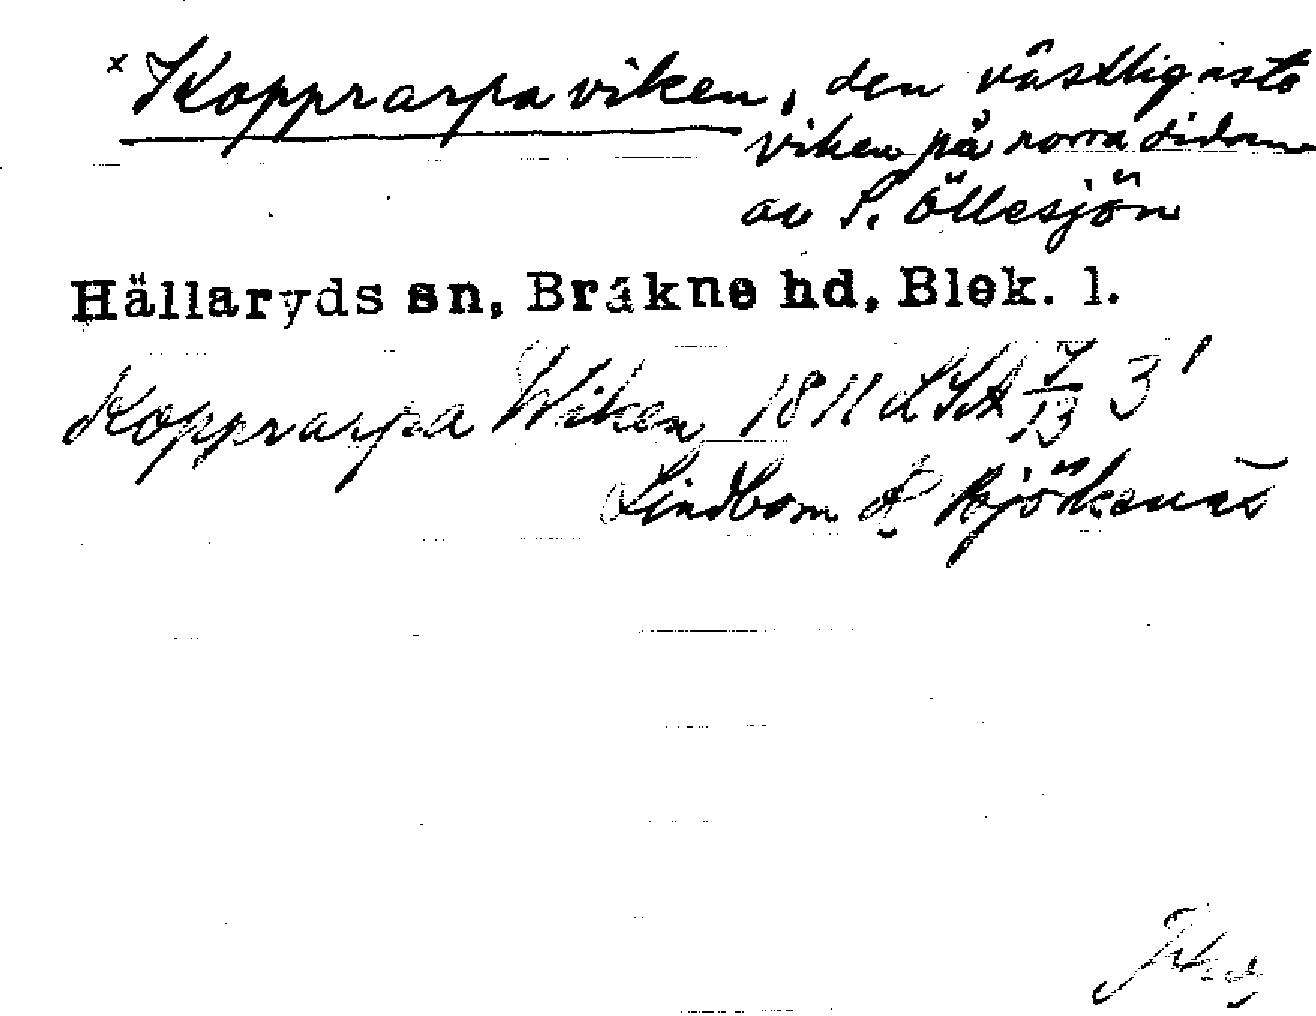 x Kopprarpaviken, den västligaste
viken på norra sidan
av S. Öllesjön
Hällaryds sn, Bräkne hd, Blek. l.
Kopprarpa Wiken 1811 LSA 7/13 3'
Lindbom & Björkenäs